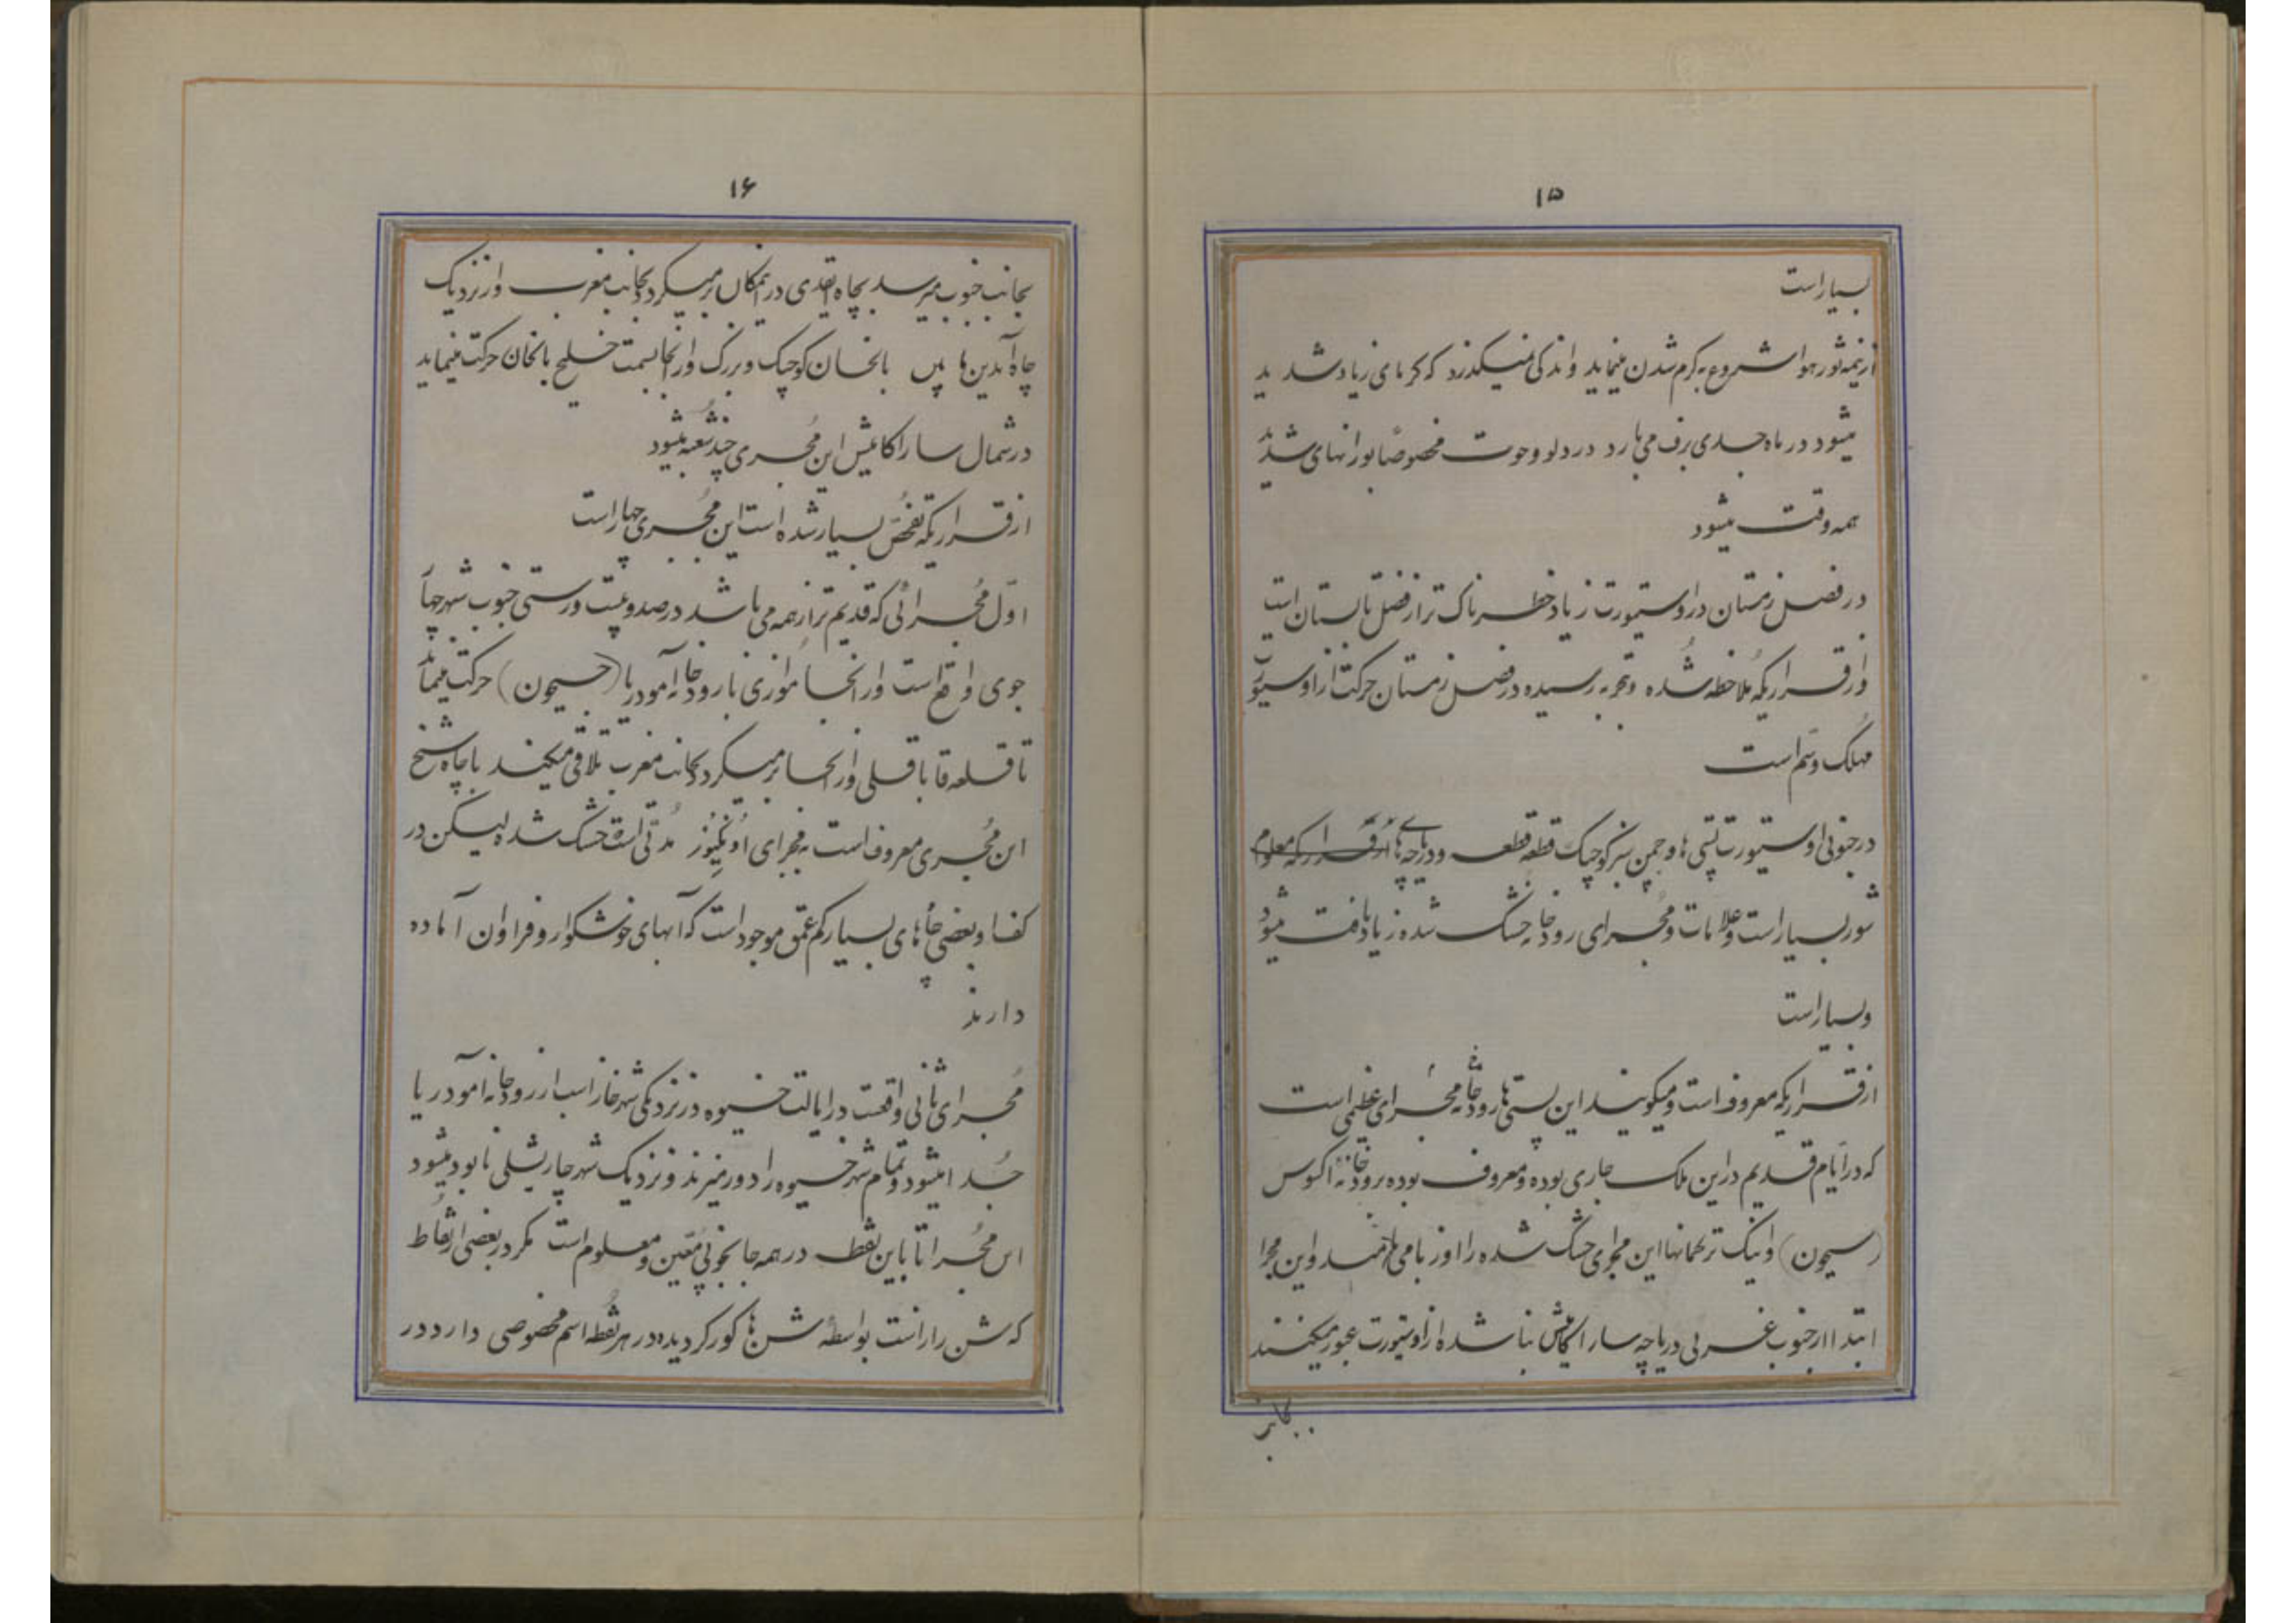 ۱۵
بسیار است
از نیمه ثور هوا شروع به گرم شدن مینماید و اندکی نمیگذرد که گرمای زیاد شدید
میشود در ماه جدی برف می بارد در دلو و حوت مخصوصاً بورانهای شدید
همه وقت میشود
در فصل زمستان در اوستیورت زیاد خطرناک تر از فصل تابستان است
و از قراریکه ملاحظه شده و تجربه رسیده در فصل زمستان حرکت از اوستیورت
مهلک و سم است
در جنوبی اوستیورت پستی ها و چمن سبز کوچک قطعه قطعه و دریاچه های از قراریکه معلوم
شور بسیار است و علامات و مجرای رودخانه خشک شده زیاد یافت میشود
و بسیار است
از قراریکه معروف است و میگویند این پستی ها رودخانه مجرای عظمی است
که در ایام قدیم در این ملک جاری بوده و معروف بوده برودخانه اکسوس
(سیحون) و اینک ترکمانها این مجرای خشک شده را اوزبا می نامند و این مجرا
ابتدا از جنوب غربی دریاچه ساراکامیش بنا شده از اوستیورت عبور میکنند
بجانب
۱۶
بجانب جنوب میرسد بچاه اقدی در آنمکان برمیگردد بجانب مغرب و از نزدیک
چاه آیدین ها پس بالخان کوچک و بزرگ و از آنجا بسمت خلیج بالخان حرکت مینماید
در شمال ساراکامیش این مجری چند شعبه میشود
از قراریکه تفحص بسیار شده است این مجری چهار است
اول مجرائی که قدیم تر از همه می باشد در صد و بیست ورستی جنوب شهر چهار
جوی واقع است و از آنجا موازی با رودخانه آمودریا (جیحون) حرکت مینماید
تا قلعه قاباقلی و از آنجا برمیگردد بجانب مغرب تلاقی میکند با چاه شیخ
این مجری معروف است به مجرای اونگیوز مدتی است خشک شده لیکن در
کفا و بعضی چاههای بسیار کم عمق موجود است که آبهای خوشگوار و فراوان آماده
دارند
مجرای ثانی واقعست در ایالت خیوه در نزدیکی شهر خازاسب از رودخانه آمودریا
جدا میشود و تمام شهر خیوه را دور میزند و نزدیک شهر چاریشلی نابود میشود
این مجرا تا باین نقطه در همه جا بخوبی معین و معلوم است مگر در بعضی از نقاط
که شن زار است بواسطه شن ها کور گردیده در هر نقطه اسم مخصوصی دارد در